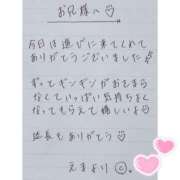 お兄様へ♡
今日は遊びに来てくれて
ありがとうございました
ずってギンギンがおさまら
なくていっぱい気持ちよく
なてもらえて嬉しいよ♡
延長もありがとう♡
えまより